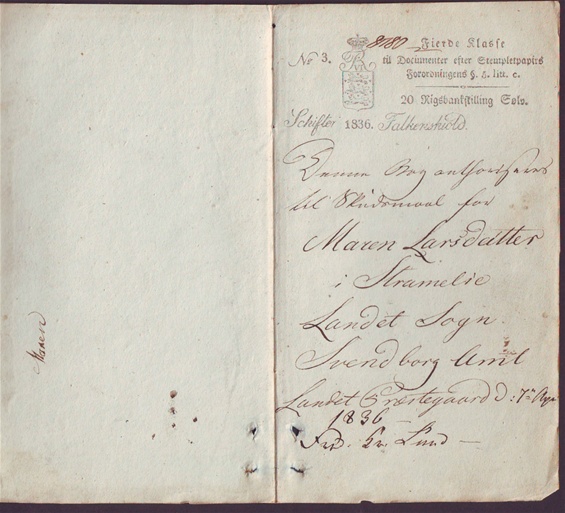 Maren
No 3. 8180 Fierde Klasse
til Documenter efter Stempletpapirs
Forordningens §. litt. c.
20 Rigsbankskilling Sølv.
Schifter 1836. Falkenskiold.
Denne Bog authoriseres
til Skudsmaal for
Maren Larsdatter
i Stramelie
Landet Sogn
Svendborg Amt
Landet Præstegaard d: 7
1836
Lund